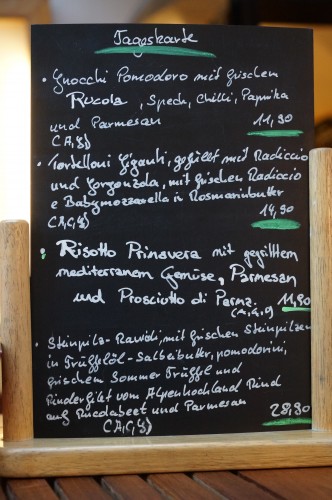 Tageskarte
• Gnocchi Pomodoro mit frischem
Rucola, Speck, Chilli, Paprika
und Parmesan 11,90
(A,G)
• Tortelloni Giganti, gefüllt mit Radiccio
und Gorgonzola, mit frischen Radiccio
e Babymozzarella in Rosmarinbutter
(A,C,G) 14,90
• Risotto Primavera mit gegrilltem
mediterranem Gemüse, Parmesan
und Prosciutto di Parma 11,90
(A,G,9)
• Steinpilz-Ravioli, mit frischen Steinpilzen
in Trüffelöl-Salbeibutter, pomodorini,
frischem Sommer Trüffel und
Rinderfilet vom Alpenhochland Rind
auf Rucolabeet und Parmesan
(A,C,G) 28,90